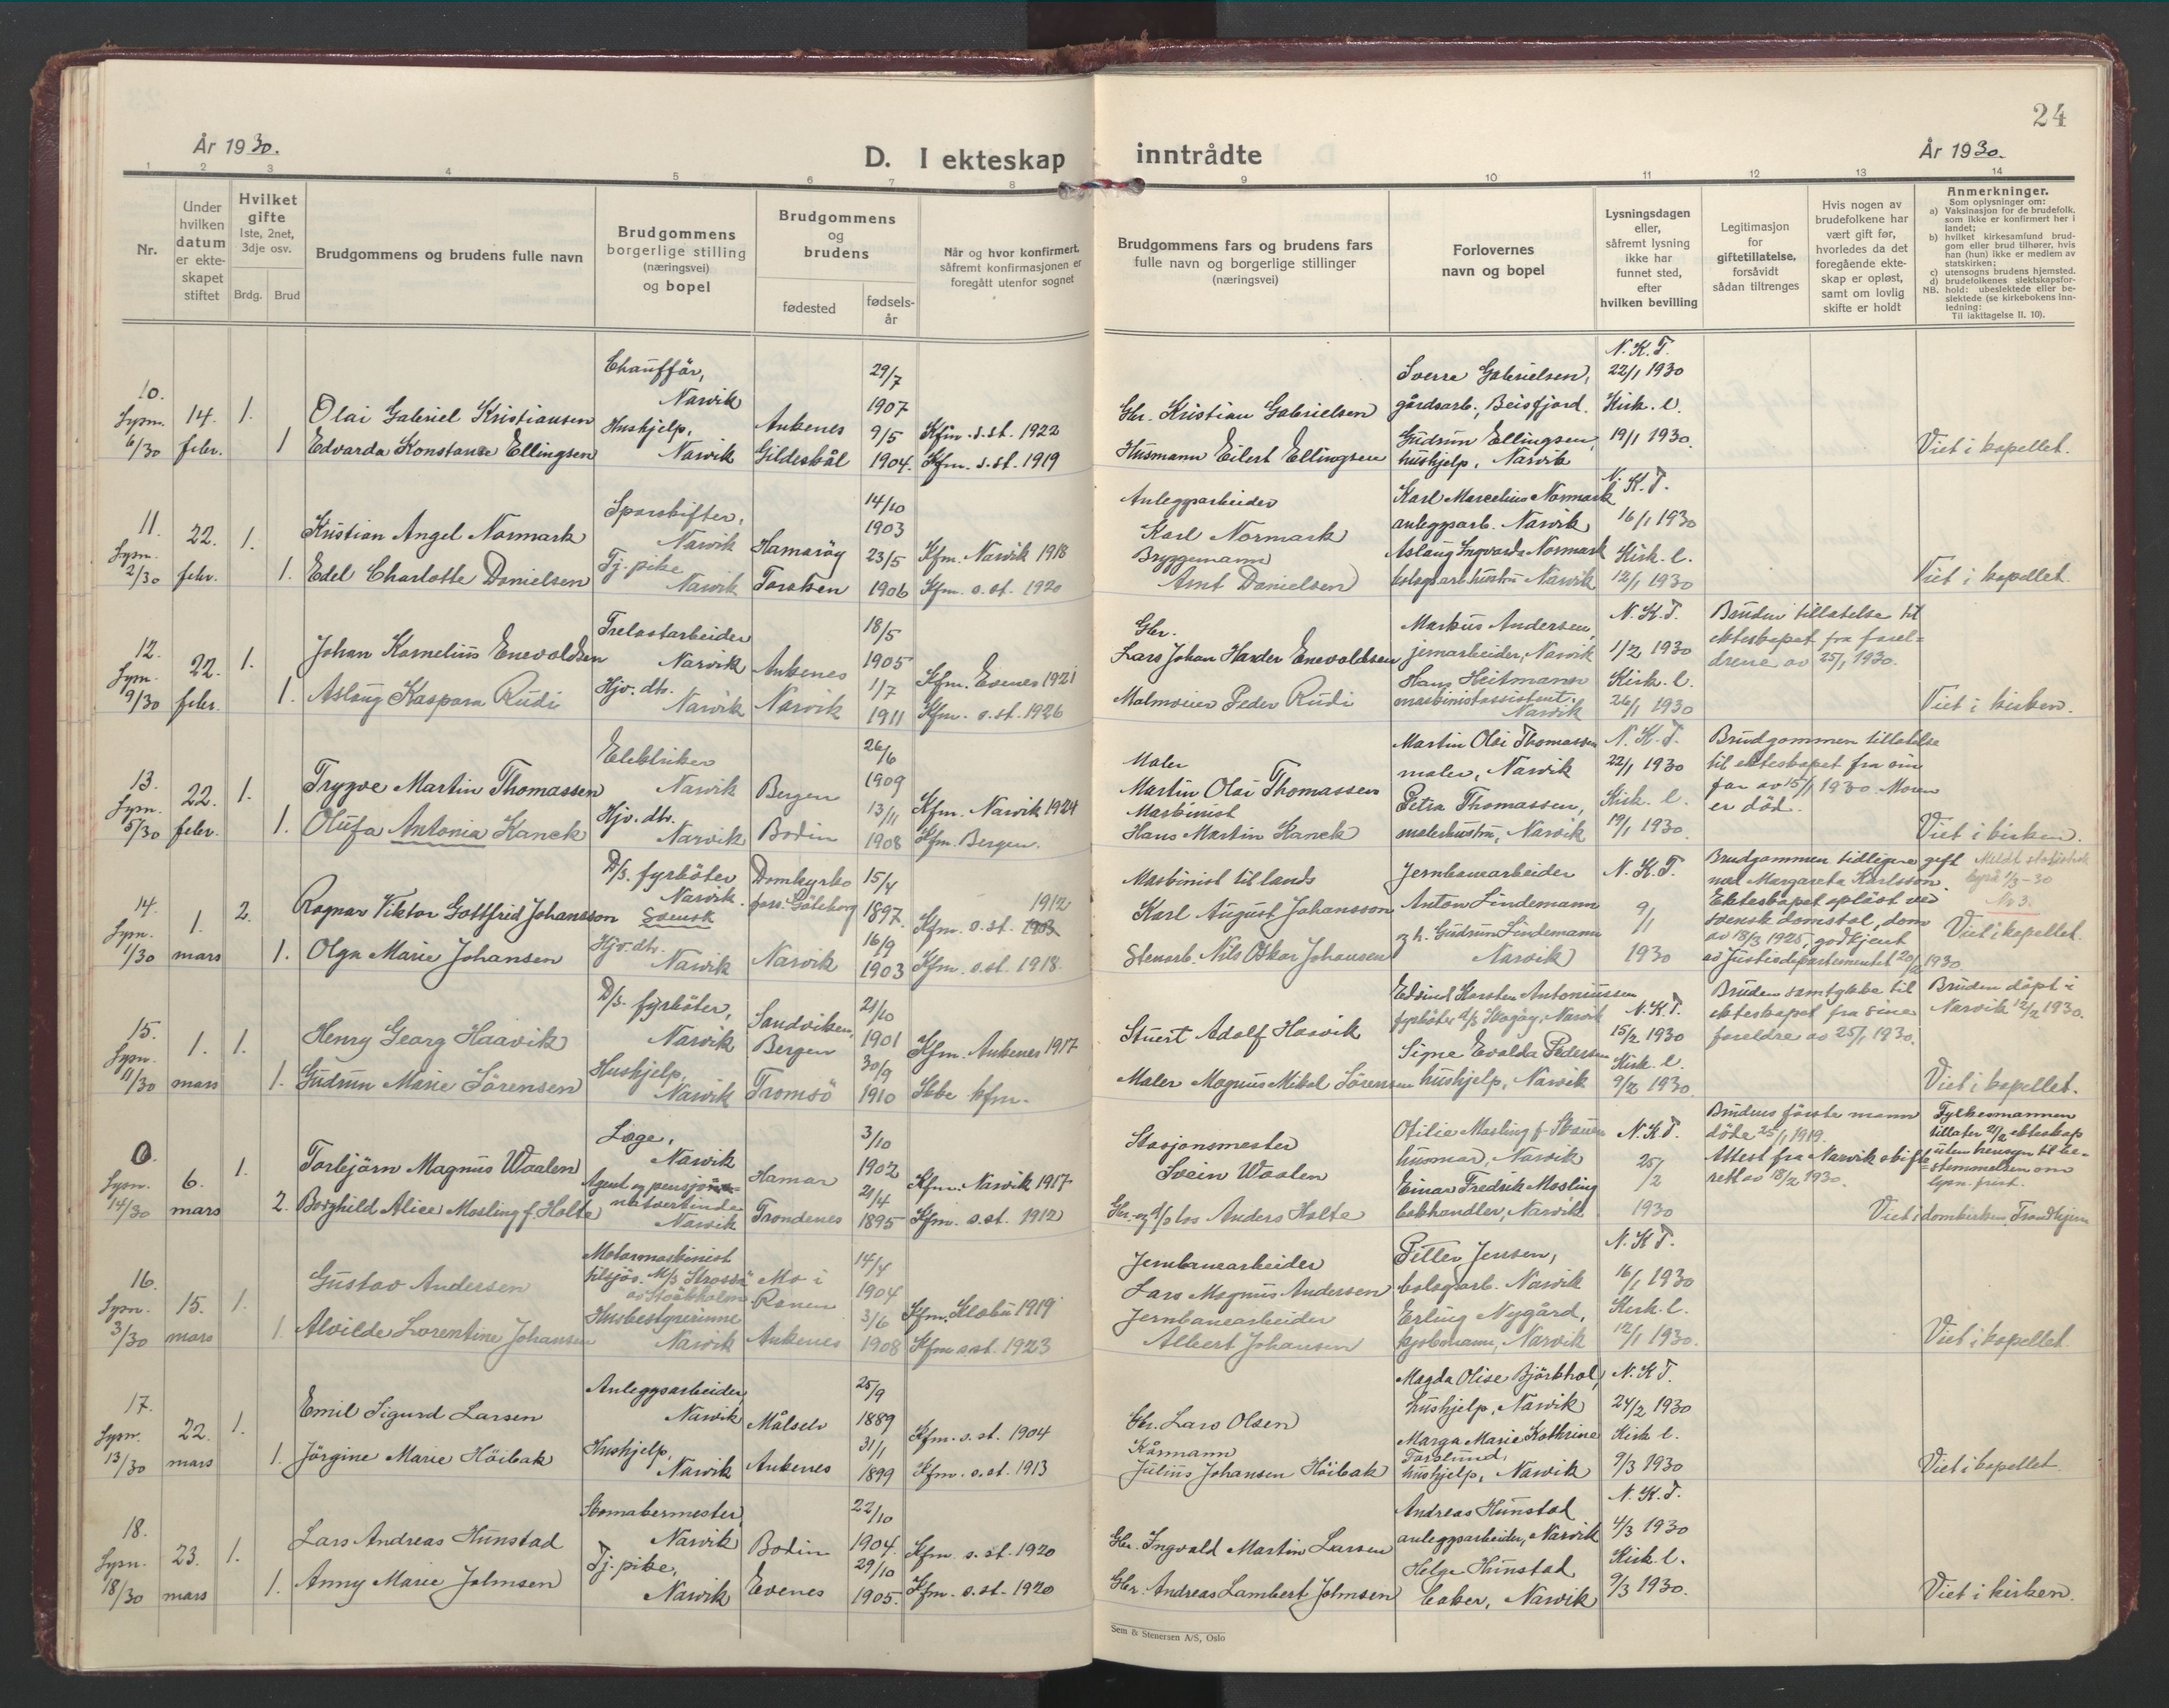 24
År 1930.
År 1930.
D. I ekteskap inntrådte
1 2 3 4 5 6 7 8 9 10 11 12 13 14
Nr.
Under hvilken datum er ekteskapet stiftet
Hvilket gifte 1ste, 2net, 3dje osv.
Brdg. Brud
Brudgommens og brudens fulle navn
Brudgommens borgerlige stilling (næringsvei) og bopel
Brudgommens og brudens
fødested
fødselsår
Når og hvor konfirmert, såfremt konfirmasjonen er foregått utenfor sognet
Brudgommens fars og brudens fars fulle navn og borgerlige stillinger (næringsvei)
Forlovernes navn og bopel
Lysningsdagen eller, såfremt lysning ikke har funnet sted, efter hvilken bevilling
Legitimasjon for giftetillatelse, forsåvidt sådan tiltrenges
Hvis nogen av brudefolkene har vært gift før, hvorledes da det foregående ekteskap er opløst, samt om lovlig skifte er holdt
Anmerkninger.
Som oplysninger om:
a) Vaksinasjon for de brudefolk, som ikke er konfirmert her i landet;
b) hvilket kirkesamfund brudgom eller brud tilhører, hvis han (hun) ikke er medlem av statskirken;
c) utensogns brudens hjemsted.
d) brudefolkenes slektskapsforhold: ubeslektede eller beslektede (se kirkebokens innledning:
NB. Til iakttagelse II. 10).
10.
Lysn. 6/30
14. febr.
1.
Olai Gabriel Kristiansen
Chauffør, Narvik
Ankenes
29/7 1907
Kfm. s.st. 1922
Gbr. Kristian Gabrielsen
Sverre Gabrielsen, gårdsarb., Beisfjord.
N.K.T. 22/1 1930
1
Edvarda Konstanse Ellingsen
Hushjelp, Narvik
Gildeskål
9/5 1904.
Kfm. s.st. 1919
Husmann Eilert Ellingsen
Gudrun Ellingsen, hushjelp, Narvik
Kirk. l. 19/1 1930.
Viet i kapellet.
11.
Lysn. 2/30
22. febr.
1.
Kristian Angel Normark
Sporskifter, Narvik
Hamarøy
14/10 1903
Kfm. Narvik 1918
Anleggsarbeider Karl Normark
Karl Marcelius Normark anleggsarb. Narvik
N.K.T. 16/1 1930
1.
Edel Charlotte Danielsen
Tj. pike Narvik
Torsken
23/5 1906
Kfm. s.st. 1920
Bryggemann Arnt Danielsen
Aslaug Ingvarda Normark Narvik
Kirk. l. 12/1 1930
Viet i kapellet.
12.
Lysn. 9/30
22. febr.
1.
Johan Kornelius Enevoldsen
Trelastarbeider Narvik
Ankenes
18/5 1905
Kfm. Evenes 1921
Gbr. Lars Johan Harder Enevoldsen
Markus Andersen, jernarbeider, Narvik
N.K.T. 1/2 1930
Bruden tillatelse til ekteskapet fra foreldrene av 25/1 1930.
1.
Aslaug Kaspara Rudi
Hjv. dtr. Narvik
Narvik
1/7 1911
Kfm. s.st. 1926
Malmveier Peder Rudi
Hans Heitmann maskinistassistent, Narvik
Kirk. l. 26/1 1930
Viet i kirken.
13.
Lysn. 5/30
22. febr.
1.
Trygve Martin Thomassen
Elektriker Narvik
Bergen
26/6 1909
Kfm. Narvik 1924
Maler Martin Olai Thomassen
Martin Olai Thomassen maler, Narvik
N.K.T. 22/1 1930
Brudgommen tillatelse til ekteskapet fra sin far av 15/1 1930. Moren er död.
1.
Olufa Antonia Hanck
Hjv. dtr. Narvik
Bodin
13/11 1908
Kfm. Bergen.
Maskinist Hans Martin Hanck
Petra Thomassen, malerhustru, Narvik
Kirk. l. 19/1 1930.
Viet i kirken.
14.
Lysn. 1/30
1. mars
2.
Ragnar Viktor Gottfrid Johansson
D/s. fyrböter Narvik. Svensk
Domkyrko förs. Göteborg
15/4 1897.
Kfm. s.st. 1912
Maskinist tillands Karl August Johansson
Jernbanearbeider Anton Lindemann
N.K.T. 9/1 1930
Brudgommen tidligere gift med Margareta Karlsson. Ekteskapet oplöst ved svensk domstol, dom av 18/3 1925, godkjent av Justisdepartementet 20/2 1930
Meldt statistisk byrå 1/3-30
No 3.
1.
Olga Marie Johansen
Hjv. dtr. Narvik
Narvik
16/9 1903
Kfm. s.st. 1918.
Stenarb. Nils Oskar Johansen
og h. Gudrun Lindemann Narvik
Viet i kapellet.
15.
Lysn. 11/30
1. mars
1.
Henry Georg Haavik
D/s. fyrböter, Narvik
Sandviken, Bergen
21/10 1901
Kfm. Ankenes 1917
Stuert Adolf Haavik
Edvind Karsten Antoniussen fyrböter d/s Skogøy, Narvik
N.K.T. 15/2 1930
Bruden samtykke til ekteskapet fra sine foreldre av 25/1 1930.
Bruden döpt i Narvik 12/2 1930.
1.
Gudrun Marie Sörensen
Hushjelp, Narvik
Tromsö
30/9 1910
Ikke kfm.
Maler Magnus Mikal Sörensen
Signe Evalda Pedersen hushjelp, Narvik
Kirk. l. 9/2 1930.
Viet i kapellet.
0
Lysn. 14/30
6. mars
1.
Torbjörn Magnus Waalen
Læge, Narvik
Hamar
3/10 1902
Kfm. Narvik 1917
Stasjonsmester Svein Waalen
Otilie Mosling f. Skauen husmor, Narvik
N.K.T. 25/2 1930
Brudens förste mann döde 25/1 1919. Attest fra Narvik skifterett av 18/2 1930.
Fylkesmannen tillater 21/2 ekteskap uten hensyn til bestemmelsen om lysn. frist.
2.
Borghild Alice Mosling f. Holte
Agent og Narvik
Trondenes
21/4 1895
Kfm. s.st. 1912
Gbr. og d/s los Anders Holte
Einar Fredrik Mosling bokhandler, Narvik
Viet i domkirken, Trondhjem
16.
Lysn. 3/30
15. mars
1.
Gustav Andersen
Motormaskinist tilsjøs. M/s Strassa av Stockholm
Mo i Ranen
14/4 1904
Kfm. Klæbu 1919
Jernbanearbeider Lars Magnus Andersen
Petter Jensen, bolagsarb. Narvik
N.K.T. 16/1 1930
1.
Alvilde Lorentine Johansen
Husbestyrerinne Narvik
Ankenes
3/6 1908
Kfm s.st. 1923
Jernbanearbeider Albert Johansen
Erling Nygård, Narvik
Kirk. l. 12/1 1930.
Viet i kapellet.
17.
Lysn. 13/30
22. mars
1.
Emil Sigurd Larsen
Anleggsarbeider, Narvik
Målselv
25/9 1889
Kfm. s.st. 1904
Gbr. Lars Olsen
Magda Olise Björkhol, hushjelp, Narvik
N.K.T. 24/2 1930
1.
Jörgine Marie Höibak
Hushjelp, Narvik
Ankenes
31/1 1899
Kfm. s.st. 1913
Kårmann Julius Johansen Höibak
Marga Marie Kathrine Forslund, hushjelp, Narvik
Kirk l. 9/3 1930
Viet i kapellet
18.
Lysn. 18/30
23. mars
1.
Lars Andreas Hunstad
Skomakermester, Narvik
Bodin
22/10 1904.
Kfm. s.st. 1920
Gbr. Ingvald Martin Larsen
Andreas Hunstad anleggsarbeider, Narvik
N.K.T. 4/3 1930
1.
Anny Marie Johnsen
Tj. pike, Narvik
Evenes
29/10 1905.
Kfm. s.st. 1920
Gbr. Andreas Lambert Johnsen
Helge Hunstad baker, Narvik
Kirk. l. 9/3 1930.
Viet i kirken.
Sem & Stenersen A/S, Oslo